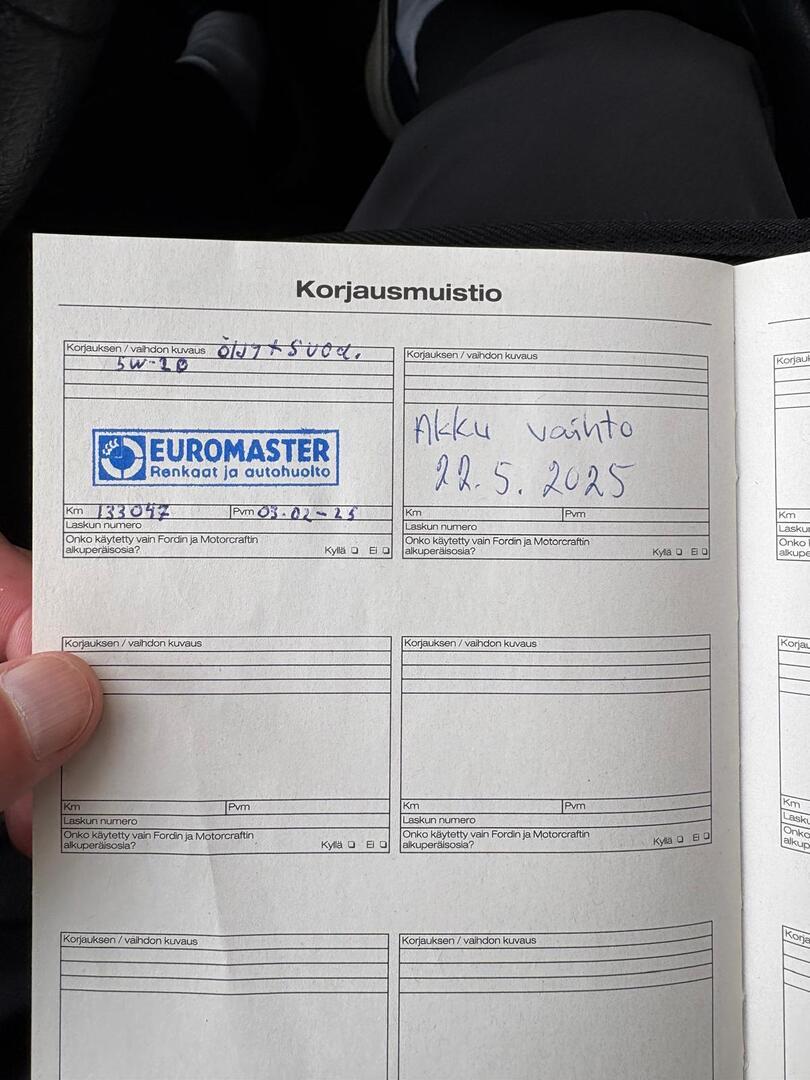 Korjausmuistio
Korjauksen / vaihdon kuvaus öljyt + suod.
5W-20
EUROMASTER
Renkaat ja autohuolto
Km 133047 Pvm 03-02-25
Laskun numero
Onko käytetty vain Fordin ja Motorcraftin
alkuperäisosia? Kyllä ☐ Ei ☐
Korjauksen / vaihdon kuvaus
Akku vaihto
22.5.2025
Km Pvm
Laskun numero
Onko käytetty vain Fordin ja Motorcraftin
alkuperäisosia? Kyllä ☐ Ei ☐
Korjauksen / vaihdon kuvaus
Km Pvm
Laskun numero
Onko käytetty vain Fordin ja Motorcraftin
alkuperäisosia? Kyllä ☐ Ei ☐
Korjauksen / vaihdon kuvaus
Km Pvm
Laskun numero
Onko käytetty vain Fordin ja Motorcraftin
alkuperäisosia? Kyllä ☐ Ei ☐
Korjauksen / vaihdon kuvaus
Korjauksen / vaihdon kuvaus
Km
Km